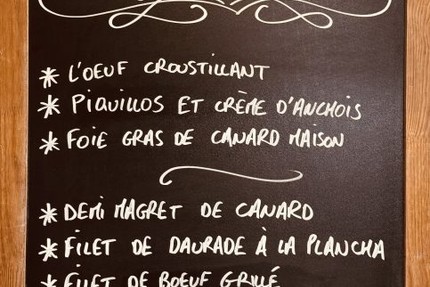 * L'OEUF CROUSTILLANT
* PIQUILLOS ET CRÈME D'ANCHOIS
* FOIE GRAS DE CANARD MAISON
* DEMI MAGRET DE CANARD
* FILET DE DAURADE À LA PLANCHA
* FILET DE BOEUF GRILLÉ